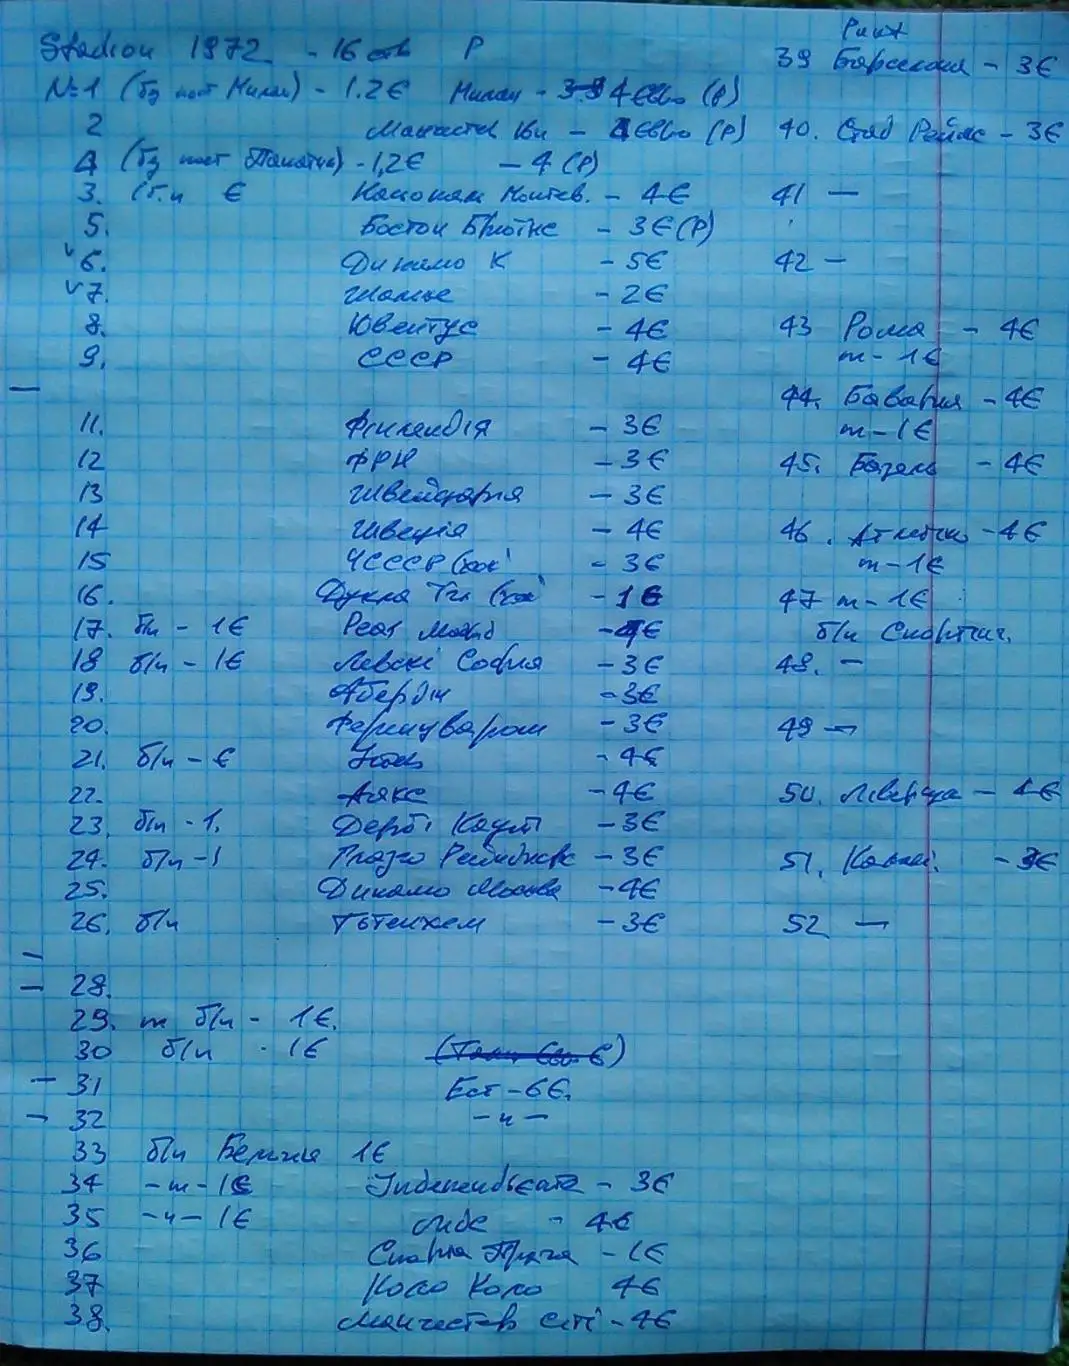 Stadion 1972 - 16 ств Р
№1 (бз пост Милан) - 1.2€ Милан - 4 євро (Р)
2 Манчестер Юн - 4 євро (Р)
4 (бз пост) - 1,2€ - 4 (Р)
3. б.п € Насіонал Монтев. - 4€
5. Бостон Брюїнс - 3€ (Р)
v 6. Динамо К - 5€
v 7. - 2€
8. Ювентус - 4€
9. СССР - 4€
—
11. Фінляндія - 3€
12 ФРН - 3€
13 Швейцарія - 3€
14 Швеція - 4€
15 ЧСССР (хок) - 3€
16. Дукла (хок) - 1€
17. б/п - 1€ Реал Мадрид - 4€
18 б/п - 1€ Левскі Софія - 3€
19. Абердін - 3€
20. Ференцварош - 3€
21. б/п - € - 4€
22. Аякс - 4€
23. б/п - 1. Дербі Каунті - 3€
24. б/п - 1 Глазго Рейнджерс - 3€
25. Динамо Москва - 4€
26. б/п Тотенхем - 3€
—
— 28.
29. т б/п - 1€.
30 б/п - 1€
— 31 Ест - 6€.
— 32 - и -
33 б/п 1€
34 - т - 1€ Індепендьєнте - 3€
35 - и - 1€ Лідс - 4€
36 Спарта Прага - 1€
37 Коло Коло 4€
38. Манчестер Сіті - 4€
39 Барселона - 3€
40. Стад Реймс - 3€
41 —
42 —
43 Рома - 4€
т - 1€
44. Баварія - 4€
т - 1€
45. Базель - 4€
46. Атлетіко - 4€
т - 1€
47 т - 1€
б/п Спортинг.
48. —
49 —
50. Ліверпуль - 4€
51. - 3€
52 —